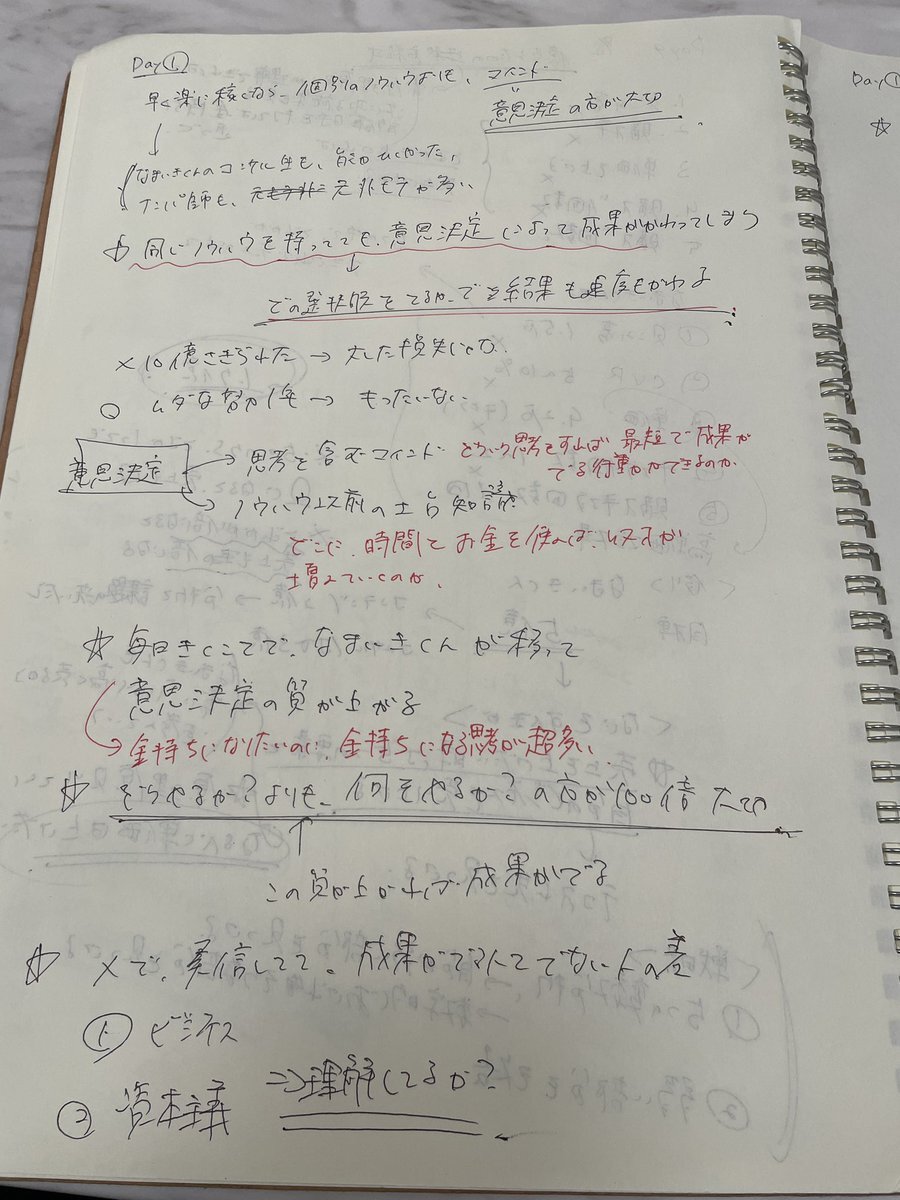 Day①
早く楽に稼ぐなら 個別のノウハウよりも、マインド
意思決定の方が大切
なまいきくんのコンサル生も、
ナンパ師も、元非モテが多い
☆ 同じノウハウを持ってても、意思決定によって成果がかわってしまう
どの選択肢をとるかで結果も速度もかわる
× 10億さぎられた → 大した損失じゃない
○ ムダな努力1年 → もったいない
意思決定 → 思考を含むマインド どういう思考をすれば最短で成果がでる行動ができるのか
→ ノウハウ以前の土台知識
どこに、時間とお金を使えば、リターンが増えていくのか、
☆ 毎日きくことで、なまいきくんが移って
意思決定の質が上がる
→ 金持ちになりたいのに、金持ちになる思考が超多い
☆ どうやるか?よりも、何をやるか?の方が100倍大切
↑
この質が上がれば成果がでる
☆ Xで、発信してて、成果がでる人とでない人の差
① ビジネス
② 資本主義 ⇒理解してるか?
Day①
☆